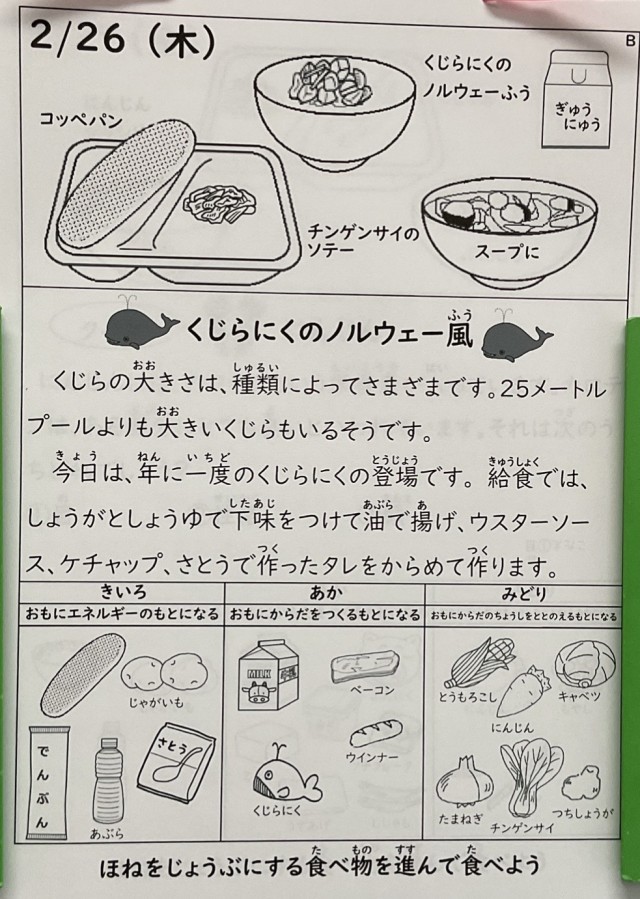 2/26（木）
B
くじらにくの
ノルウェーふう
ぎゅう
にゅう
コッペパン
チンゲンサイの
ソテー
スープに
くじらにくのノルウェー風
くじらの大きさは、種類によってさまざまです。25メートル
プールよりも大きいくじらもいるそうです。
今日は、年に一度のくじらにくの登場です。給食では、
しょうがとしょうゆで下味をつけて油で揚げ、ウスターソー
ス、ケチャップ、さとうで作ったタレをからめて作ります。
きいろ
おもにエネルギーのもとになる
じゃがいも
でんぷん
あぶら
さとう
あか
おもにからだをつくるもとになる
MILK
ベーコン
ウインナー
くじらにく
みどり
おもにからだのちょうしをととのえるもとになる
とうもろこし
にんじん
キャベツ
たまねぎ
チンゲンサイ
つちしょうが
ほねをじょうぶにする食べ物を進んで食べよう